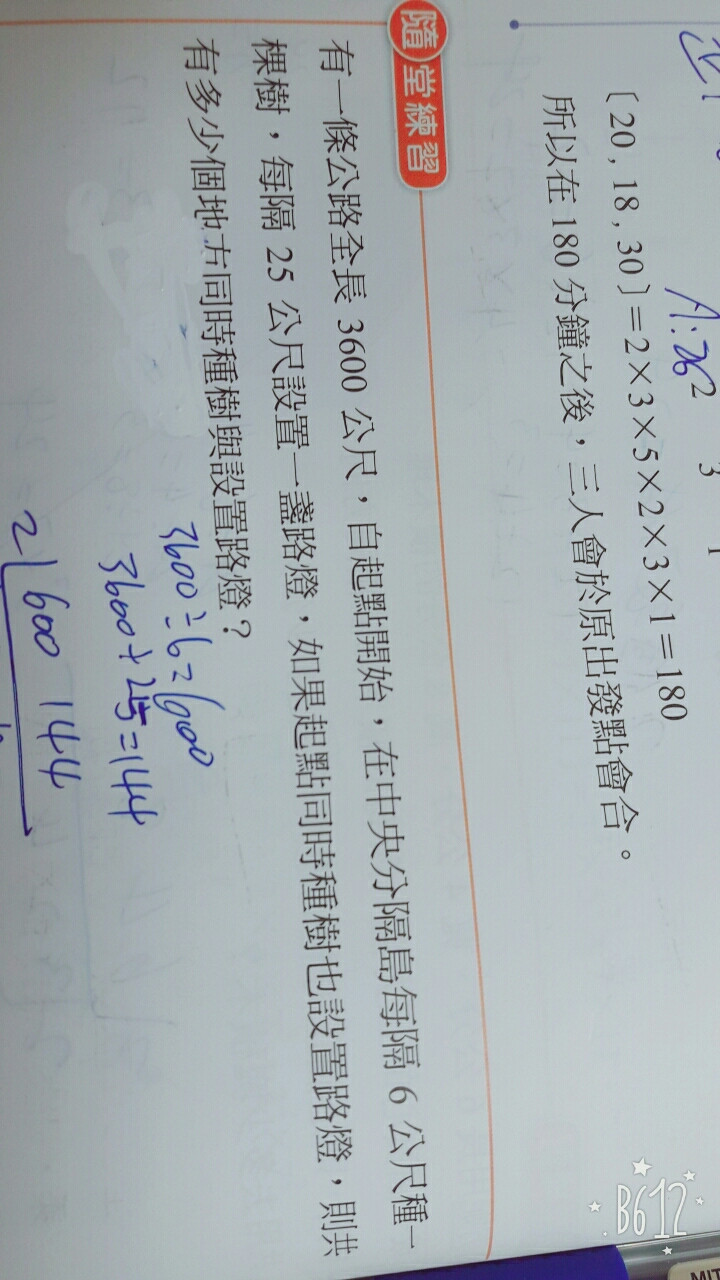 A:36²
〔20 , 18 , 30〕=2×3×5×2×3×1=180
所以在 180 分鐘之後，三人會於原出發點會合。
隨堂練習
有一條公路全長 3600 公尺，自起點開始，在中央分隔島每隔 6 公尺種一
棵樹，每隔 25 公尺設置一盞路燈，如果起點同時種樹也設置路燈，則共
有多少個地方同時種樹與設置路燈？
3600÷6=600
3600÷25=144
2 600 144
B612